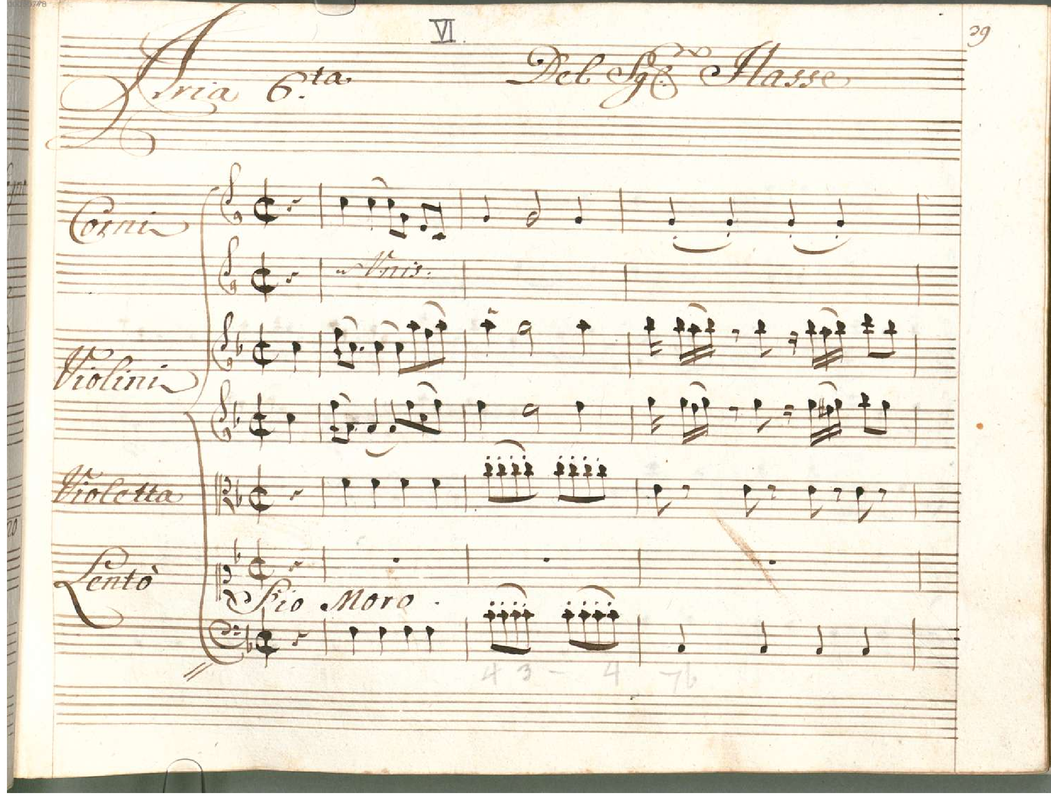 VI.
29
Aria 6.ta Del Sgr. Hasse
Corni
Unis:
Violini
Violetta
Lento
S'io Moro.
4 3 - 4 7b